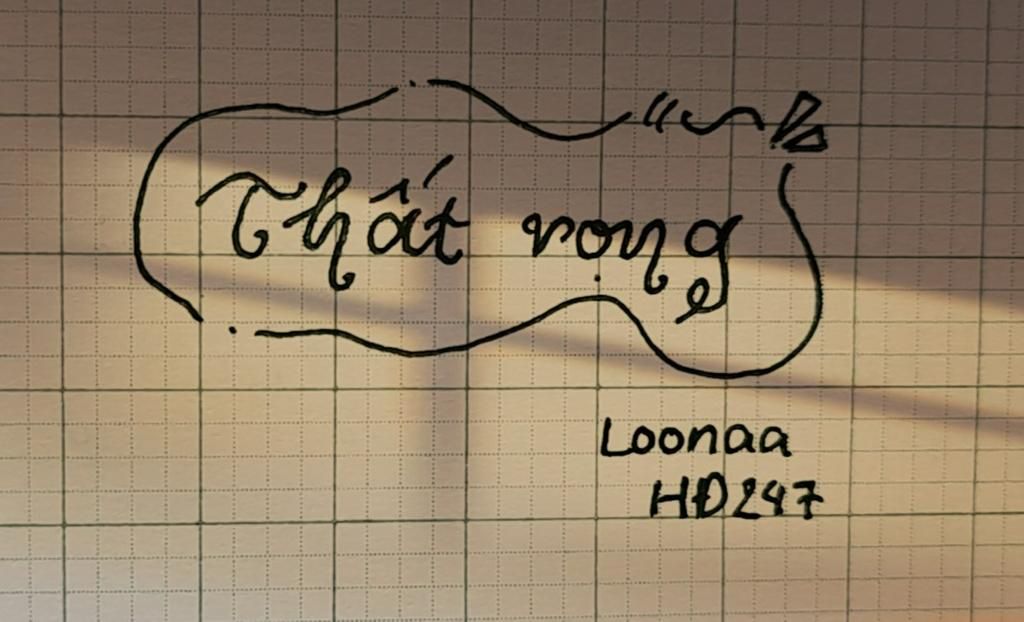 Thất vọng
Loonaa
HĐ247